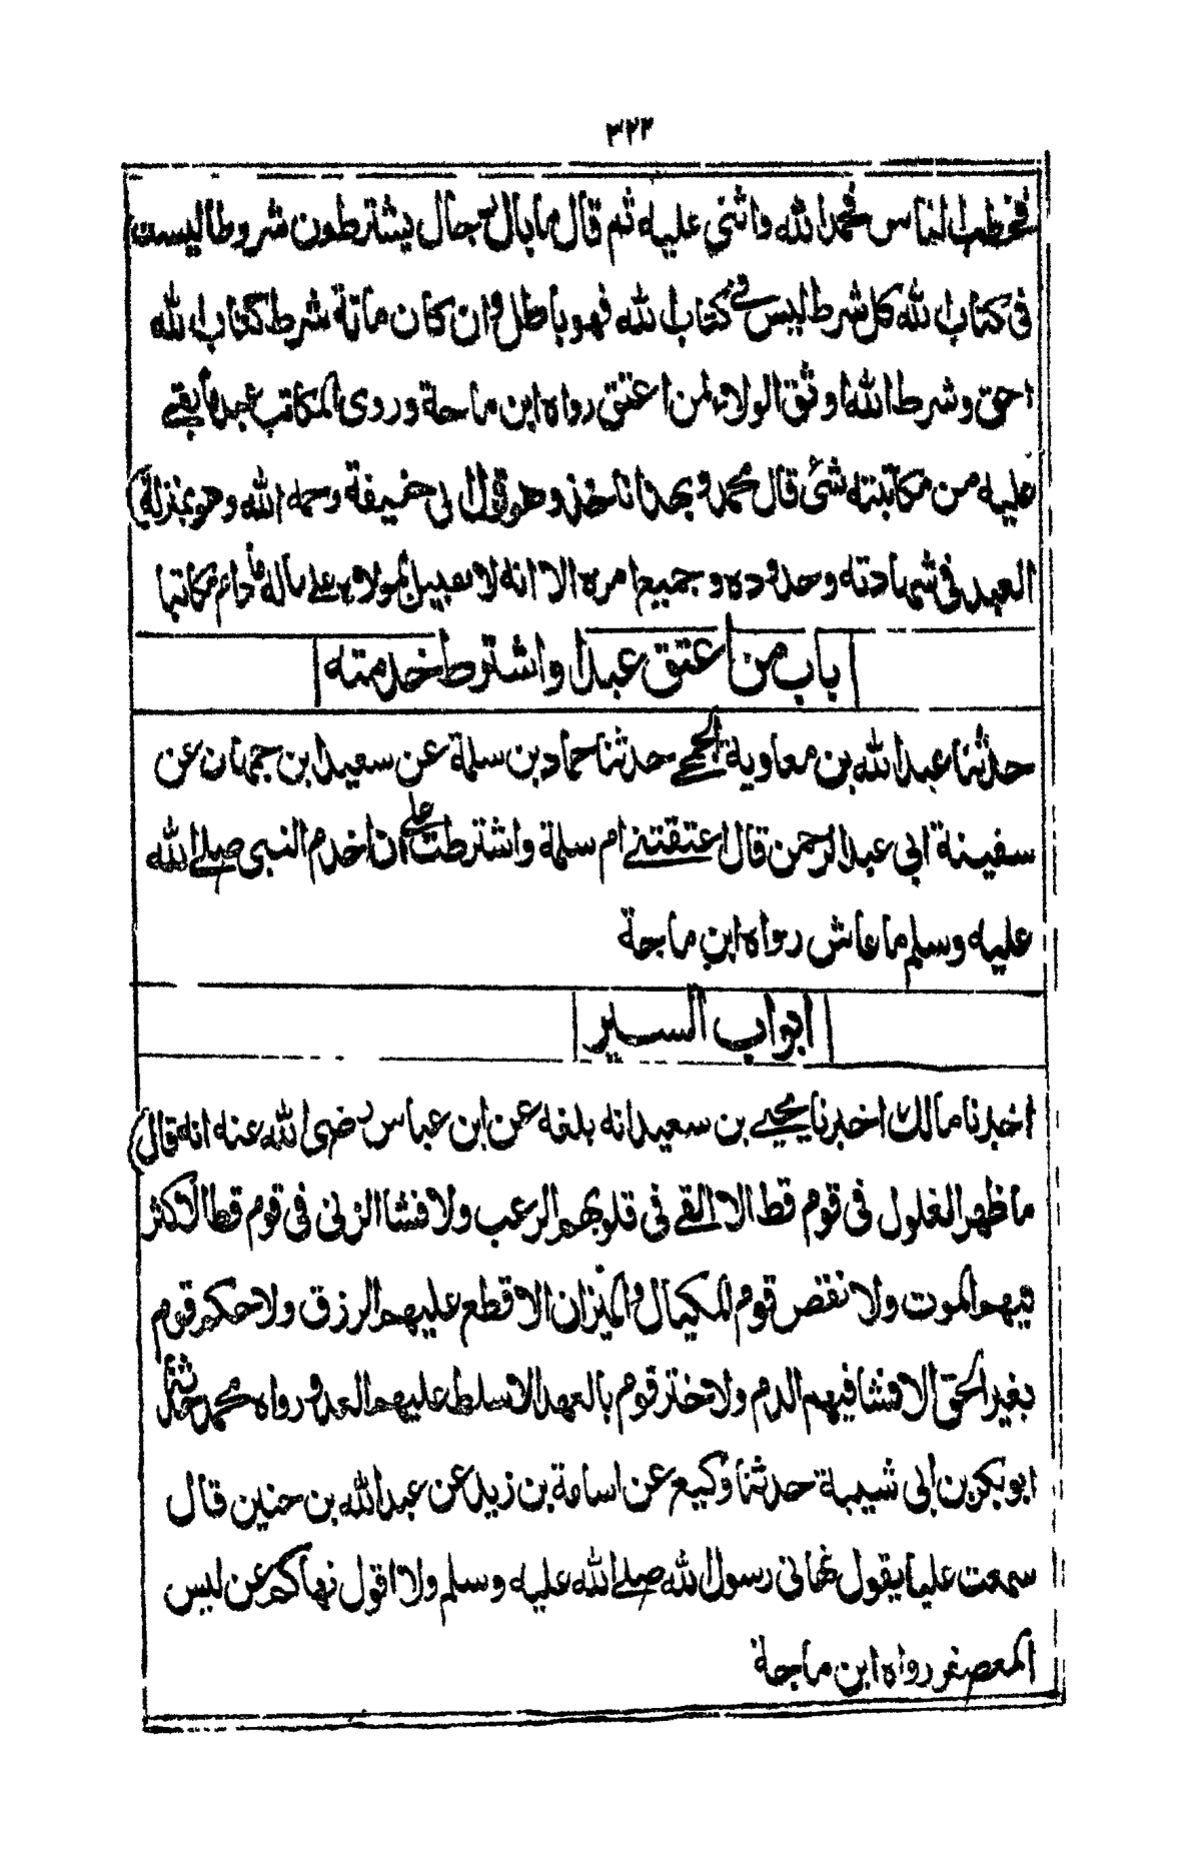 ٣٢٢
فخطب الناس فحمد الله واثنى عليه ثم قال ما بال رجال يشترطون شروطا ليست
فى كتاب الله كل شرط ليس فى كتاب الله فهو باطل وان كان مائة شرط كتاب الله
احق وشرط الله اوثق الولاء لمن اعتق رواه ابن ماجة وروى المكاتب عبد ما بقى
عليه من مكاتبته شئ قال محمد وبهذا ناخذ وهو قول ابى حنيفة رحمه الله وهو بمنزلة
العبد فى شهادته وحدوده وجميع امره الا انه لا سبيل لمولاه على ماله ما دام مكاتبا
باب من اعتق عبدا واشترط خدمته
حدثنا عبد الله بن معاوية الجمحى حدثنا حماد بن سلمة عن سعيد بن جمهان عن
سفينة ابى عبد الرحمن قال اعتقتنى ام سلمة واشترطت على ان اخدم النبى صلى الله
عليه وسلم ما عاش رواه ابن ماجة
ابواب السير
اخبرنا مالك اخبرنا يحيى بن سعيد انه بلغه عن ابن عباس رضى الله عنه انه قال
ما ظهر الغلول فى قوم قط الا القى فى قلوبهم الرعب ولا فشا الزنى فى قوم قط الا كثر
فيهم الموت ولا نقص قوم المكيال والميزان الا قطع عليهم الرزق ولا حكم قوم
بغير الحق الا فشا فيهم الدم ولا ختر قوم بالعهد الا سلط عليهم العدو رواه محمد حدثنا
ابو بكر بن ابى شيبة حدثنا وكيع عن اسامة بن زيد عن عبد الله بن حنين قال
سمعت عليا يقول نهانى رسول الله صلى الله عليه وسلم ولا اقول نهاكم عن لبس
المعصفر رواه ابن ماجة